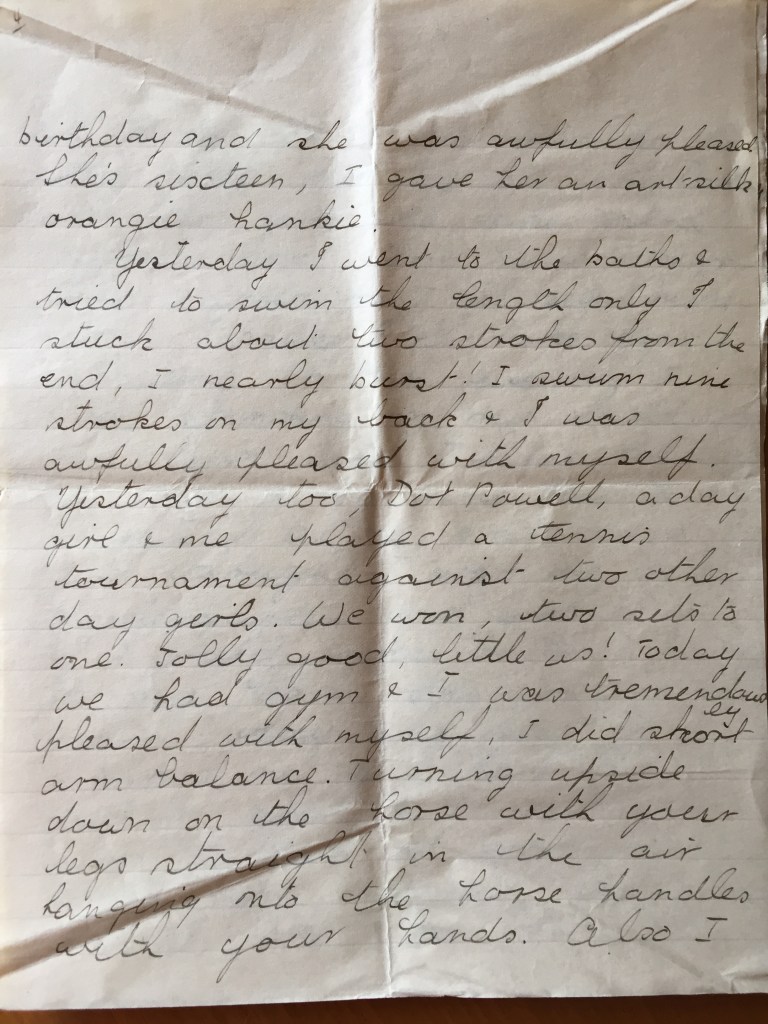 4
birthday and she was awfully pleased
She's sixteen, I gave her an art-silk
orangie hankie.
Yesterday I went to the baths &
tried to swim the length only I
stuck about two strokes from the
end, I nearly burst! I swum nine
strokes on my back & I was
awfully pleased with myself.
Yesterday too, Dot Powell, a day
girl & me played a tennis
tournament against two other
day gerls. We won, two sets to
one. Jolly good, little us! Today
we had gym & I was tremendous
ley
pleased with myself, I did short
arm balance. Turning upside
down on the horse with your
legs straight in the air
hanging nto the horse handles
with your hands. Also I